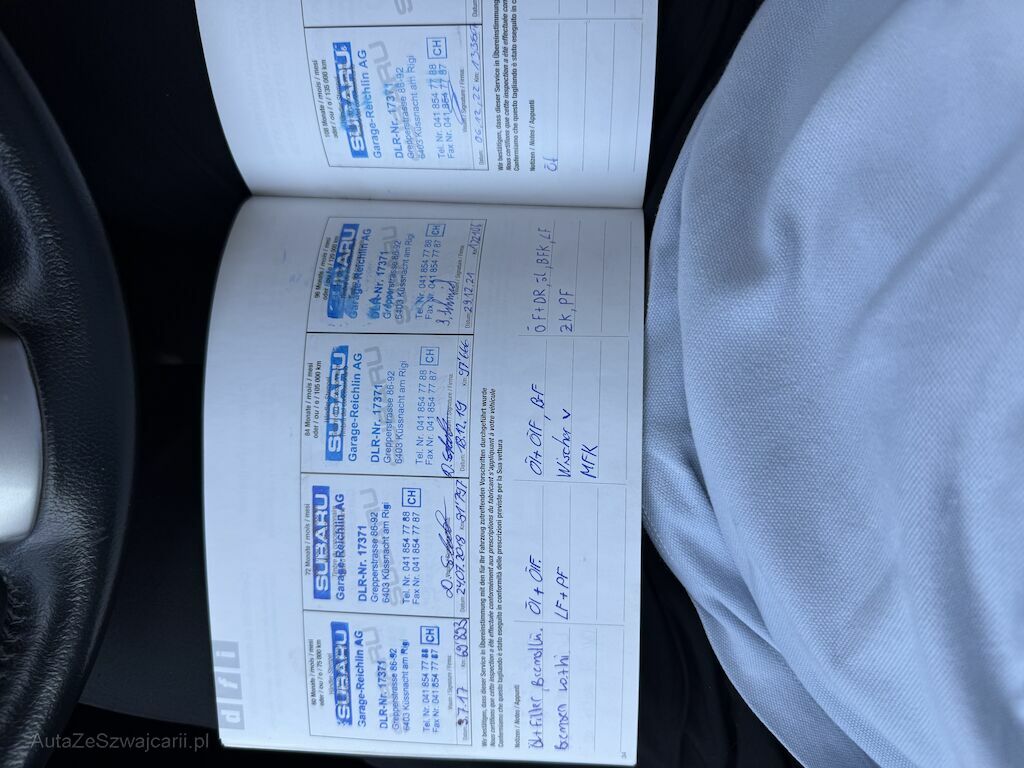 d f i
60 Monate / mois / mesi
oder / ou / o / 75 000 km
SUBARU
Garage-Reichlin AG
DLR-Nr. 17371
Grepperstrasse 86-92
6403 Küssnacht am Rigi
Tel. Nr. 041 854 77 88
Fax Nr. 041 854 77 87
CH
Datum: 3.7.17 Km: 69'803
72 Monate / mois / mesi
SUBARU
Garage-Reichlin AG
DLR-Nr. 17371
Grepperstrasse 86-92
6403 Küssnacht am Rigi
Tel. Nr. 041 854 77 88
Fax Nr. 041 854 77 87
CH
Datum: 24.07.2018 Km: 91'797
84 Monate / mois / mesi
oder / ou / o / 105 000 km
SUBARU
Garage-Reichlin AG
DLR-Nr. 17371
Grepperstrasse 86-92
6403 Küssnacht am Rigi
Tel. Nr. 041 854 77 88
Fax Nr. 041 854 77 87
CH
Datum: 18.12.19 Km: 97'666
96 Monate / mois / mesi
SUBARU
Garage-Reichlin AG
DLR-Nr. 17371
Grepperstrasse 86-92
6403 Küssnacht am Rigi
Tel. Nr. 041 854 77 88
Fax Nr. 041 854 77 87
CH
Datum: 29.12.21
Wir bestätigen, dass dieser Service in Übereinstimmung mit den für Ihr Fahrzeug zutreffenden Vorschriften durchgeführt wurde
Nous certifions que cette inspection a été effectuée conformément aux prescriptions du fabricant s'appliquant à votre véhicule
Confermiamo che questo tagliando è stato eseguito in conformità delle prescrizioni previste per la Sua vettura
Notizen / Notes / Appunti
Öl+Filter
Bremsen
Öl + ÖlF
LF + PF
Öl + ÖlF,
Wischer v
MFK
ÖF+DR, öl, BFK, LF
ZK, PF
34
108 Monate / mois / mesi
oder / ou / o / 135 000 km
SUBARU
Garage-Reichlin AG
DLR-Nr. 17371
Grepperstrasse 86-92
6403 Küssnacht am Rigi
Tel. Nr. 041 854 77 88
Fax Nr. 041 854 77 87
CH
Datum: 06.12.22 Km:
Wir bestätigen, dass dieser Service in Übereinstimmung
Nous certifions que cette inspection a été effectuée
Confermiamo che questo tagliando è stato eseguito in
Notizen / Notes / Appunti
Öl
AutaZeSzwajcarii.pl